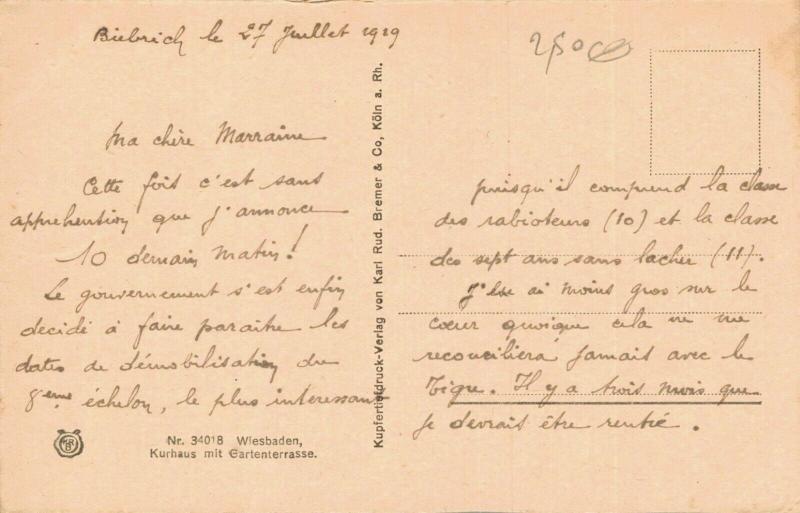 Biebrich le 27 Juillet 1919
Ma chère Marraine
Cette fois c'est sans
apprehention que j'annonce
10 demain matin !
Le gouvernement s'est enfin
decidé à faire paraître les
dates de démobilisation du
8eme échelon, le plus interessant
Nr. 34018 Wiesbaden,
Kurhaus mit Gartenterrasse.
Kupfertiefdruck-Verlag von Karl Rud. Bremer & Co, Köln a. Rh.
puisqu'il comprend la classe
des rabioteurs (10) et la classe
des sept ans sans lacher (11).
J'en ai moins gros sur le
cœur quoique cela ne me
reconciliera jamais avec le
Tigre. Il y a trois mois que
je devrais être rentré.